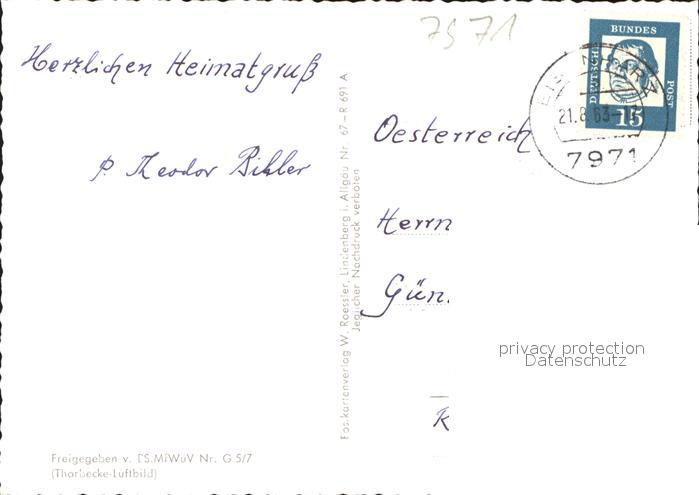 7971
Herzlichen Heimatgruß
P. Theodor Bihler
Oesterreich
Herrn
Gün.
K
DEUTSCHE
BUNDES
POST
15
21.8.63-17
7971
privacy protection
Datenschutz
Postkartenverlag W. Roessler, Lindenberg i. Allgäu Nr. 67-R 691 A
Jeglicher Nachdruck verboten
Freigegeben v. BS.MiWuV Nr. G 5/7
(Thorbecke-Luftbild)